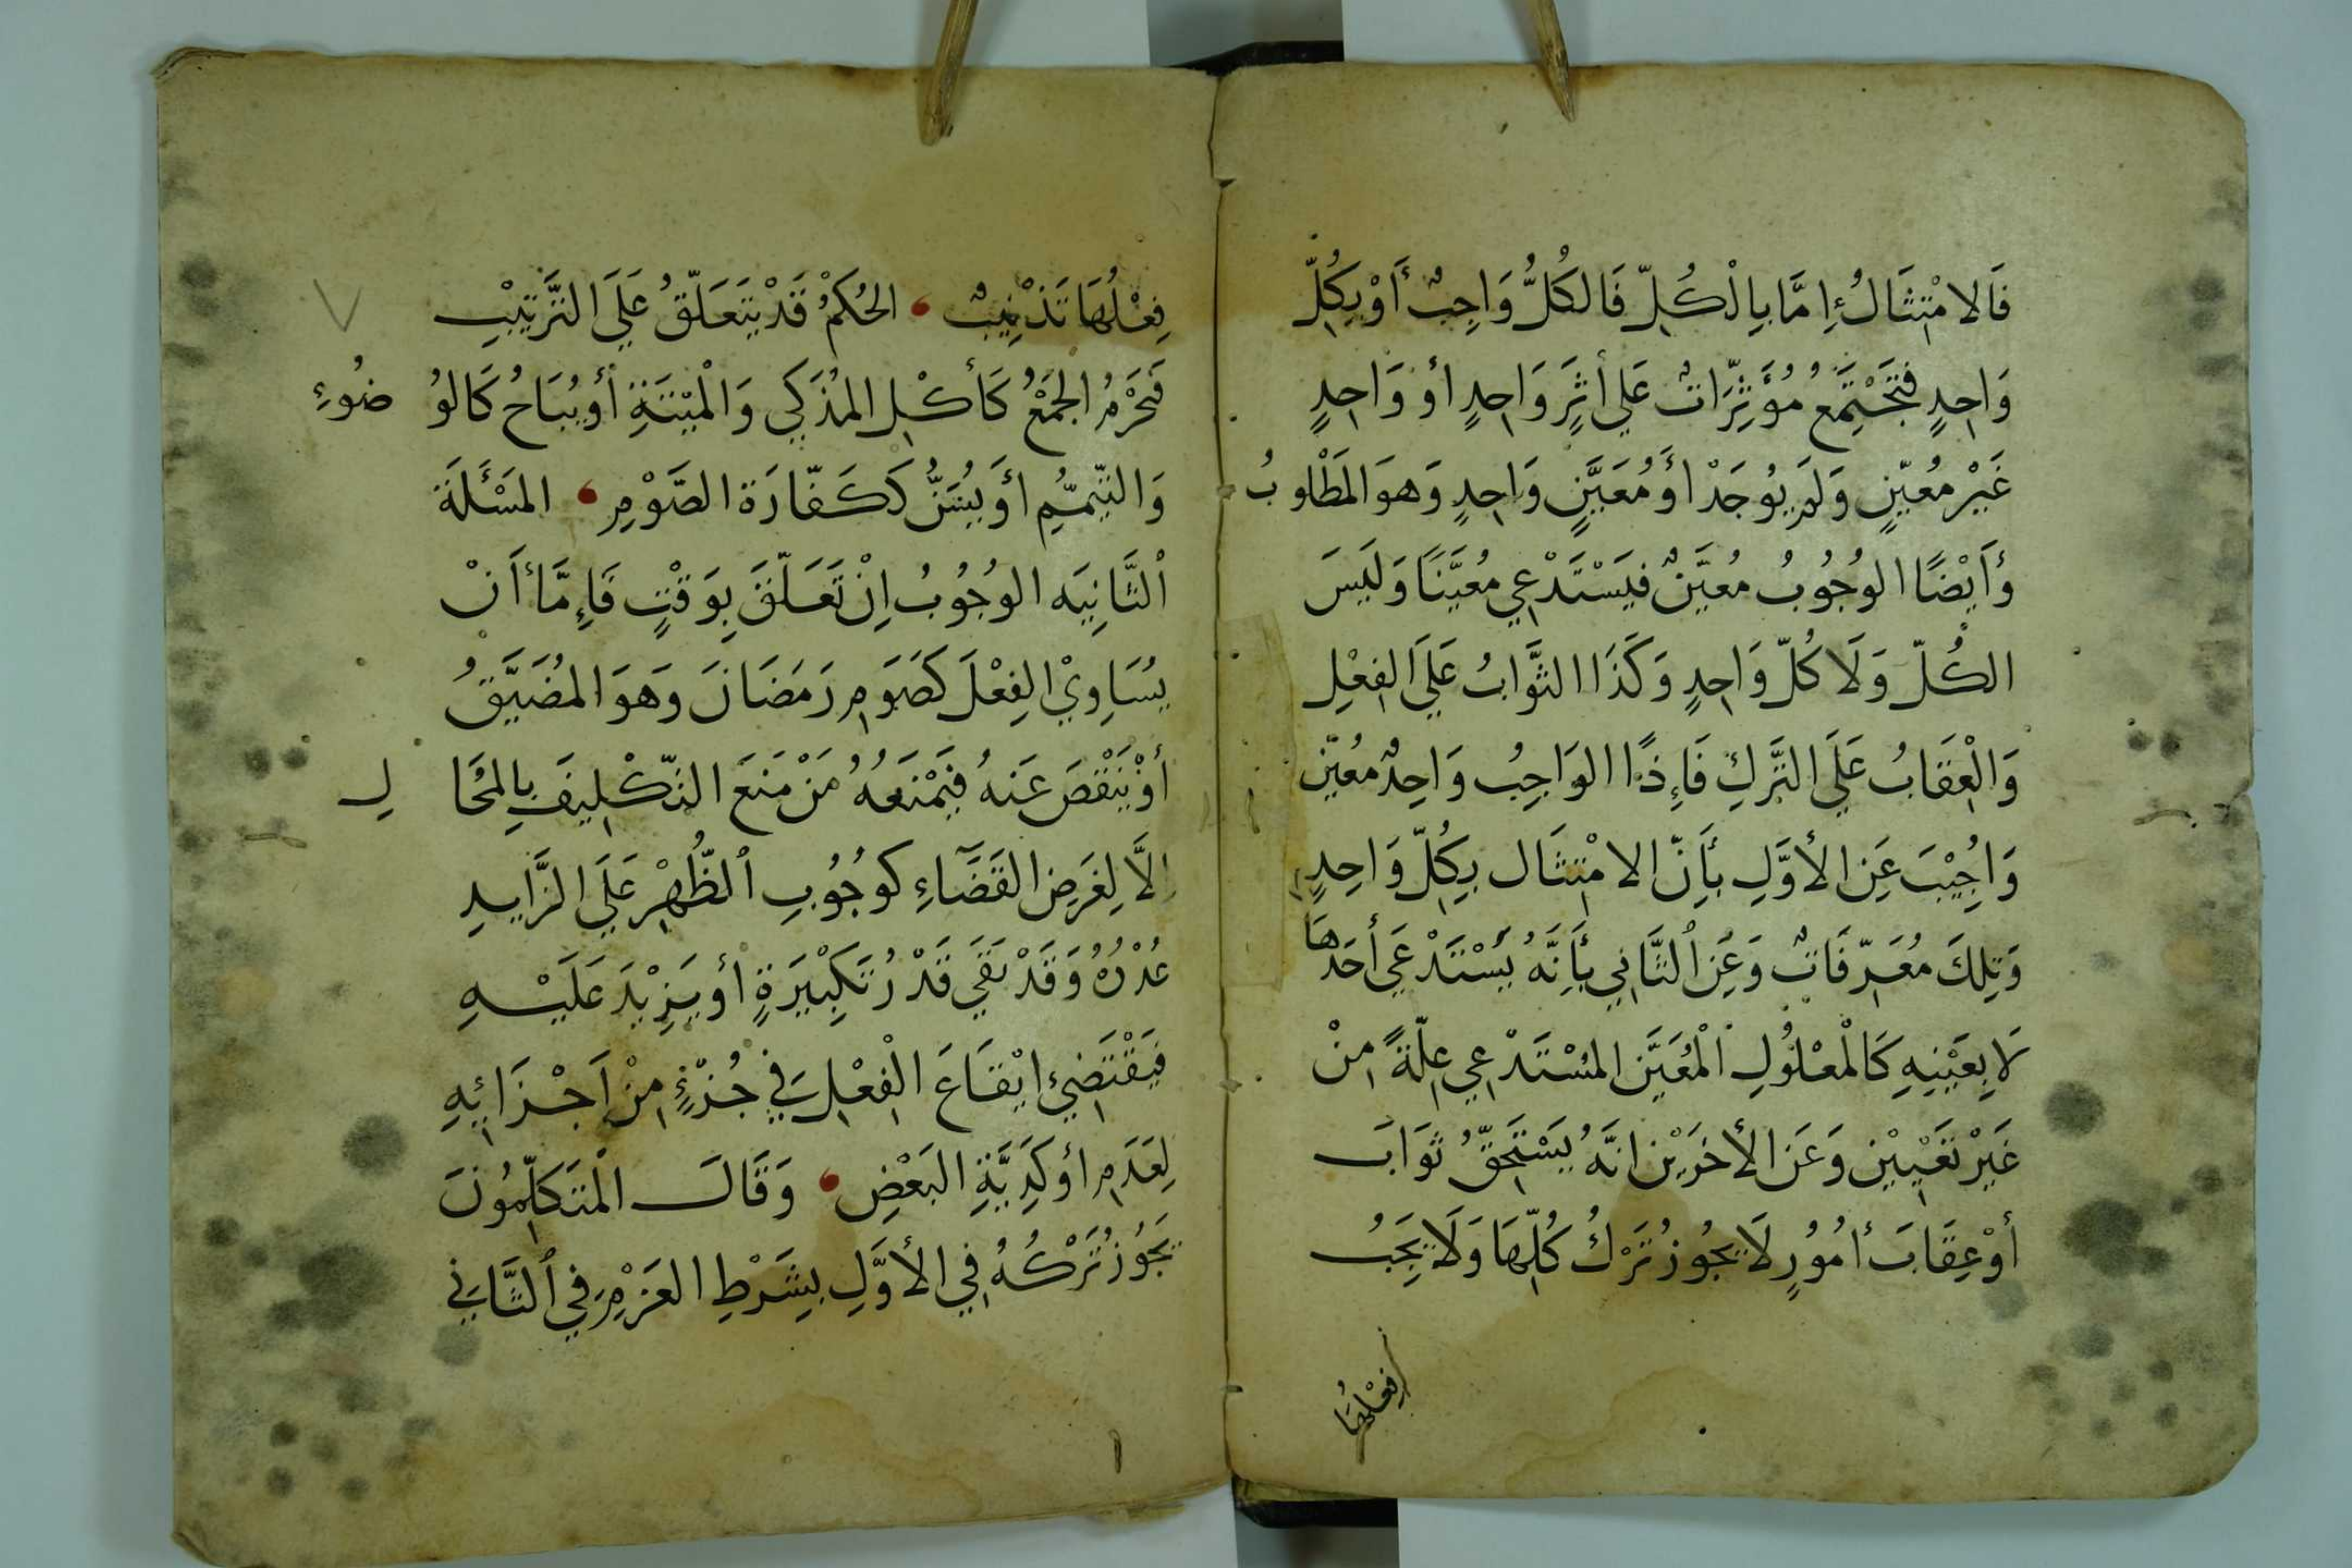 فَالامْتِثَالُ إِمَّا بِالْكُلِّ فَالكُلُّ وَاجِبٌ أَوْ بِكُلِّ
وَاحِدٍ فَتَجْتَمِعُ مُؤَثِّرَاتٌ عَلي أثرٍ وَاحِدٍ أو وَاحِدٍ
غَيْر مُعَيّنٍ وَلَم يُوجَدْ أَو مُعَيَّنٍ وَاحِدٍ وَهوَ المَطْلوبُ
وَأَيْضًا الوُجُوبُ مُعَيَّنٌ فَيَسْتَدْعِي مُعَيَّنًا وَلَيسَ
الكُلّ وَلَا كُلّ وَاحِدٍ وَكَذَا الثَّوَابُ عَلَي الفِعْلِ
وَالْعِقَابُ عَلَي التَّركِ فَإِذًا الوَاجِبُ وَاحِدٌ مُعيّن
وَاجُِيْبَ عَنِ الأوَّلِ بأَنّ الامْتِثَال بِكُلّ وَاحِدٍ
وَتِلكَ مُعَرِّفَاتٌ وَعَنِ الثَّانِي بأَنَّهُ يَسْتَدْعَي أحَدهَا
لَا بِعَيْنِهِ كَالْمعْلُولِ الْمُعَيَّن المُسْتَدْعِي عِلّةً مِنْ
غَيْر تَعْيِيْن وَعَن الأخَرَيْن انَّهُ يَسْتَحِقّ ثَوَابَ
أوْ عِقَابَ أمُورٍ لَا يجُوزُ تَرْكُ كُلِّهَا وَلَا يَجِبُ
فِعْلُهَا
فِعْلُهَا تَذْنِيبٌ ، الحُكمُ قَدْ يَتَعَلّقُ عَلَي التَّرتِيْبِ
فَيَحْرُمُ الجَمْعُ كَأكْلِ المُذَكي وَالْمَيْتَةِ أو يُبَاحُ كَالوُ ضُوءِ
وَالتّيَمّمِ أوَ يُسَنُّ كَكَفّارَة الصَّوْمِ ، المَسْئَلَة
الثَّانِيَه الوُجُوبُ اِنْ تَعَلّقَ بِوَقْتٍ فَإِمَّا أَنْ
يُسَاوِيْ الفِعْلَ كَصَوَمِ رَمَضَانَ وَهوَ المُضَيَّقُ
أوْ يَنْقصَ عَنهُ فَيَمْنَعهُ مَنْ مَنَعَ التّكْلِيفَ بِالمُحَا لِ
اِلاَّ لِغَرَضِ القَضَآءِ كوجُوبِ الظُّهْرِ عَلَي الزَّايدِ
عُذْرُهُ وَقَدْ بَقَي قَدْرُ تَكبِيْرَةٍ أو يَزِيْدَ عَلَيْهِ
فَيَقْتَضِيْ اِيْقَاعَ الْفِعْلِ في جُزْءٍ مِنْ اَجْزَائِهِ
لِعَدَمِ أوْلَوِيَّةِ البَعْضِ ، وَقَالَ المتَكلِّمُونَ
يَجُوْزُ تَرْكُهُ فِي الأوَّلِ بِشَرْطِ العَزْمِ فِي الثَّانِي